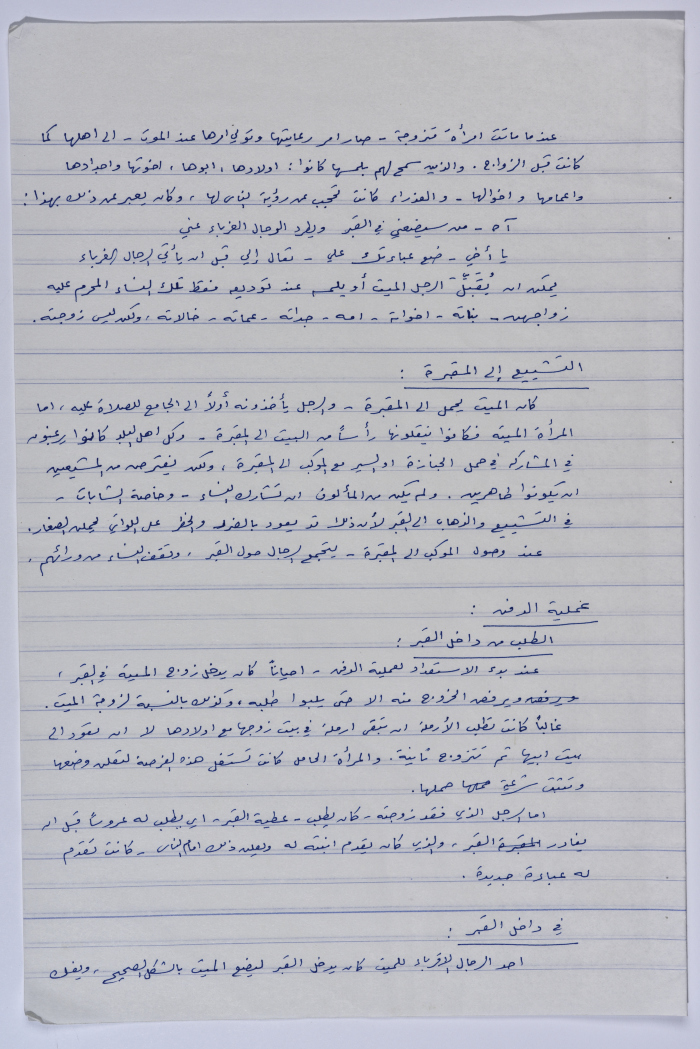 عندما ماتت امرأة متزوجة - صار امر رعايتها وتولي امرها عند الموت - الى اهلها كما
كانت قبل الزواج. والذين سمح لهم بلمسها كانوا: اولادها، ابوها، اخوتها واجدادها
واعمامها واخوالها - والعذراء كانت تحجب عن رؤية الناس لها، وكان يعبر عن ذلك بهذا:
آه - من سيضعني في القبر ويطرد الرجال الغرباء عني
يا أخي - ضع عباءتك علي - تعال إلي قبل ان يأتي الرجال الغرباء
يمكن ان يُقَبِّل الرجل الميت أو يلمسه عند توديعه فقط تلك النساء المحرم عليه
زواجهن - بناته - اخواته - امه - جداته - عماته - خالاته، ولكن ليس زوجته.
التشييع إلى المقبرة :
كان الميت يحمل الى المقبرة - والرجل يأخذونه أولاً الى الجامع للصلاة عليه، اما
المرأة الميتة فكانوا ينقلونها رأساً من البيت الى المقبرة - وكل اهل البلد كانوا يرغبون
في المشاركة في حمل الجنازة او السير مع الموكب الى المقبرة، ولكن يفترض من المشيعين
ان يكونوا طاهرين. ولم يكن من المألوف ان تشارك النساء - وخاصة الشابات -
في التشييع والذهاب الى القبر لأن ذلك قد يعود بالضرر والخطر على اللواتي يحملن الصغار.
عند وصول الموكب الى المقبرة - يتجمع الرجال حول القبر، وتقف النساء من ورائهم.
عملية الدفن :
الطلب من داخل القبر :
عند بدء الاستعداد لعملية الدفن - احياناً كان يدخل زوج الميتة في القبر،
ويرفض الخروج منه الا حتى يلبوا طلبه، وكذلك بالنسبة لزوجة الميت.
غالباً كانت تطلب الأرملة ان تبقى ارملة في بيت زوجها مع اولادها لا ان تعود الى
بيت ابيها ثم تتزوج ثانية. والمرأة الحامل كانت تستغل هذه الفرصة لتعلن وضعها
وتثبت شرعية حملها.
اما الرجل الذي فقد زوجته - كان يطلب - عطية القبر - اي يطلب له عروساً قبل ان
يغادر القبر، والذي كان يقدم ابنته له ويعلن ذلك امام الناس - كانت تقدم
له عباءة جديدة.
في داخل القبر :
احد الرجال الاقرباء للميت كان يدخل القبر ليضع الميت بالشكل الصحيح، ويفك